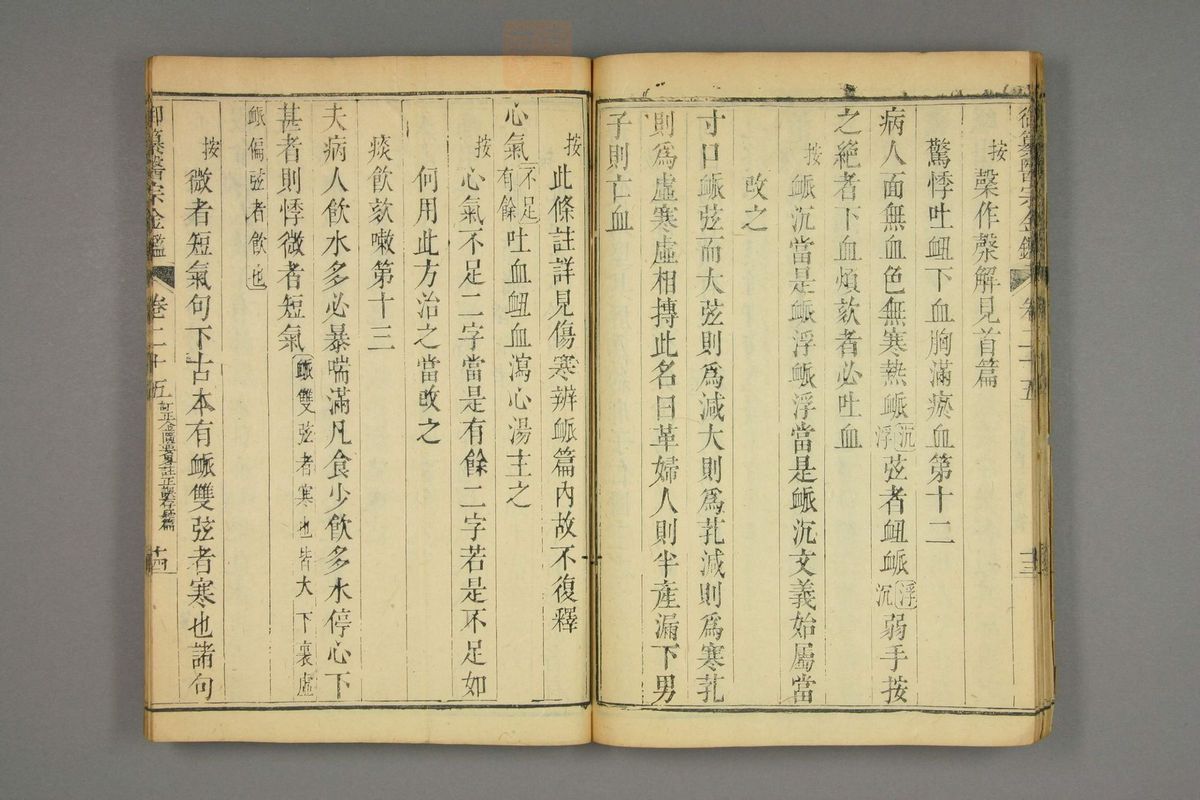 御纂醫宗金鑑 卷二十五 十三
按 槃作槃解見首篇
驚悸吐衄下血胸滿瘀血第十二
病人面無血色無寒熱脈沉浮弦者衄脈浮沉弱手按
之絕者下血煩欬者必吐血
按 脈沉當是脈浮脈浮當是脈沉文義始屬當
改之
寸口脈弦而大弦則為減大則為芤減則為寒芤
則為虛寒虛相摶此名曰革婦人則半產漏下男
子則亡血
按 此條註詳見傷寒辨脈篇內故不復釋
心氣不足有餘吐血衄血瀉心湯主之
按 心氣不足二字當是有餘二字若是不足如
何用此方治之當改之
痰飲欬嗽第十三
夫病人飲水多必暴喘滿凡食少飲多水停心下
甚者則悸微者短氣脈雙弦者寒也皆大下裏虛
脈偏弦者飲也
按 微者短氣句下古本有脈雙弦者寒也諸句
御纂醫宗金鑑 卷二十五 訂正金匱要畧註正誤存疑篇 十四